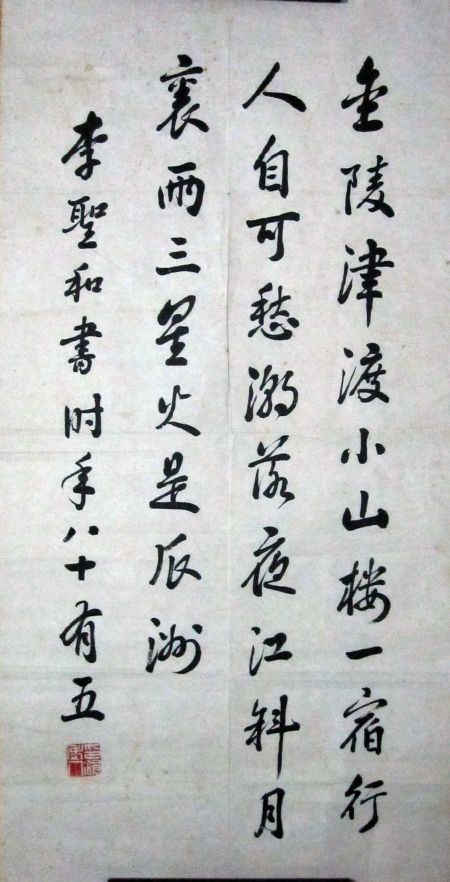 金陵津渡小山樓一宿行
人自可愁潮落夜江斜月
裏兩三星火是瓜洲
李聖和書时年八十有五